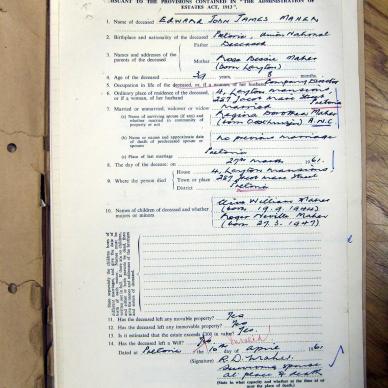 PURSUANT TO THE PROVISIONS CONTAINED IN "THE ADMINISTRATION OF
ESTATES ACT, 1913".
1. Name of deceased EDWARD JOHN JAMES MAHER
2. Birthplace and nationality of the deceased Pretoria, Union National
Father Deceased
3. Names and addresses of the parents of the deceased
Mother Rose Bessie Maher
(born Layton)
4. Age of the deceased 39 years 8 months
5. Occupation in life of the deceased, or, if a woman, of her husband Company Director
6. Ordinary place of residence of the deceased, or if a woman, of her husband
4, Layton Mansions,
257 Jacob Mare Street
Pretoria
7. Married or unmarried, widower or widow Married
(a) Name of surviving spouse (if any) and whether married in community of property or not
Regina Dorothea Maher
A.N.C.
(b) Name or names and approximate date of death of predeceased spouse or spouses
no previous marriage
(c) Place of last marriage Pretoria
8. The day of the decease: on 29th March 1961.
9. Where the person died
House 4, Layton Mansions
Town or place 257 Jacob Mare Street
District Pretoria
10. Names of children of deceased and whether majors or minors
William Maher
(born 19.9.1944)
Roger Neville Maher
(born 27.3.1947)
11. Has the deceased left any movable property? Yes
12. Has the deceased left any immovable property? Yes.
13. Is it estimated that the estate exceeds £300 in value? Yes.
14. Has the deceased left a Will? Yes
Dated at Pretoria the 10th day of April 1961
(Signature) R.D. Maher.
Surviving spouse
at place of death
(State in what capacity and whether at the time of or near the place of death).